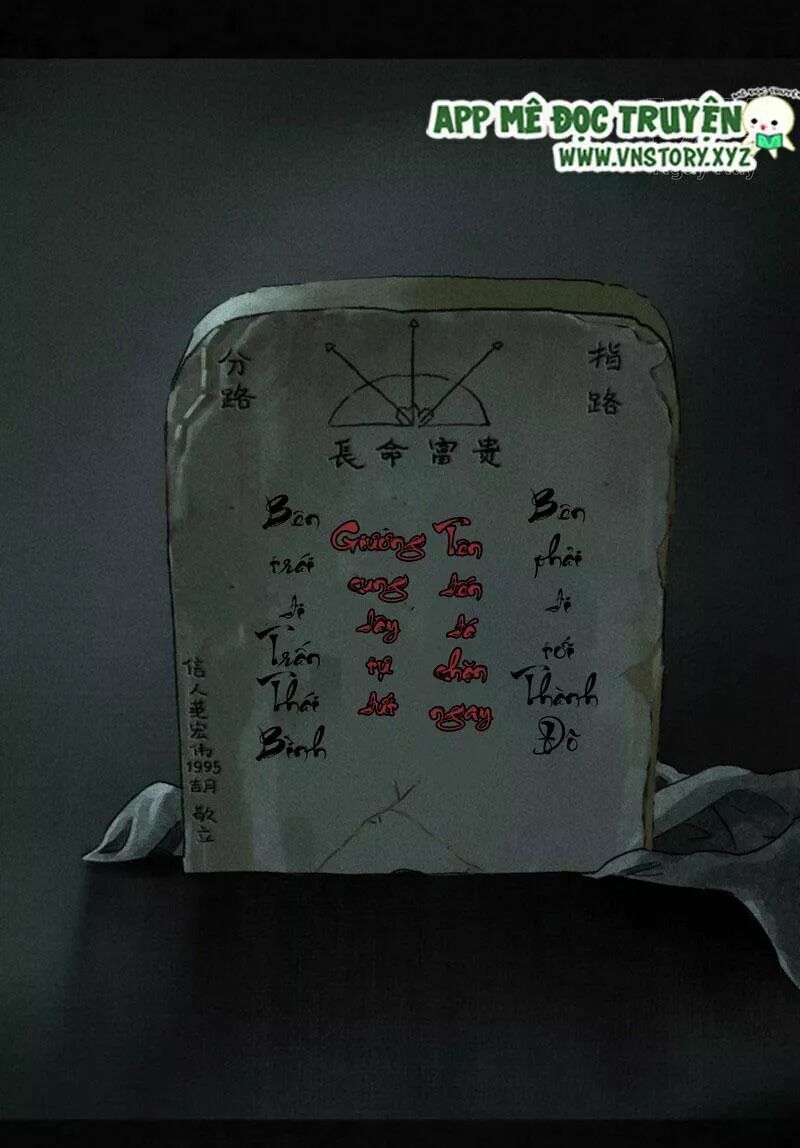 APP MÊ ĐỌC TRUYỆN
MÊ ĐỌC TRUYỆN
WWW.VNSTORY.XYZ
分路
指路
長命富貴
Bên trái đi Trấn Thái Bình
Giương cung dây tự đứt
Tên bắn đá chặn ngay
Bên phải đi tới Thành Đô
信人范宏伟
1995
敬立